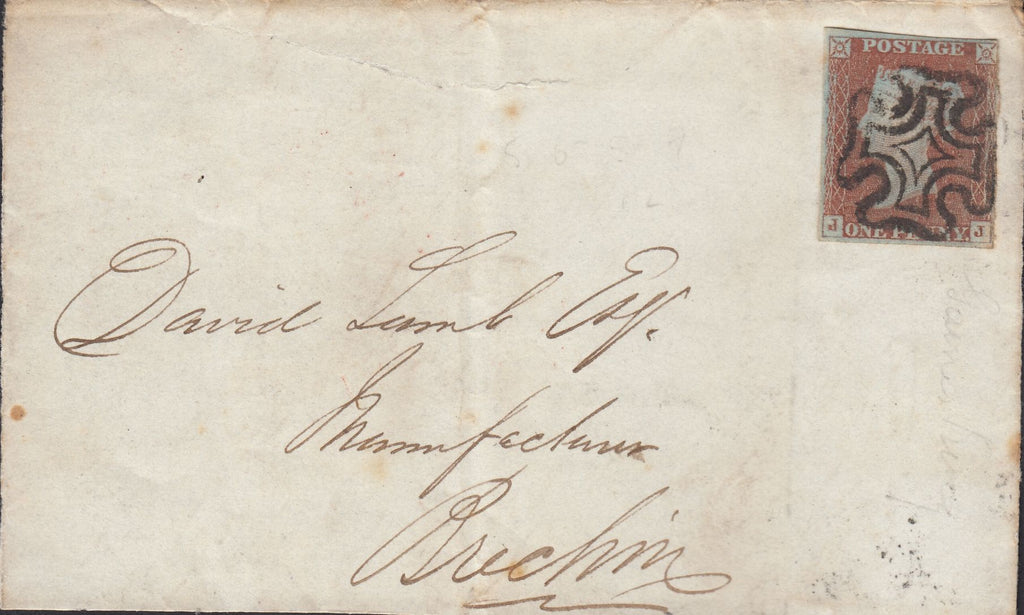 POSTAGE
J ONE PENNY. J
David Lamb Esqr.
Manufacturer
Brechin